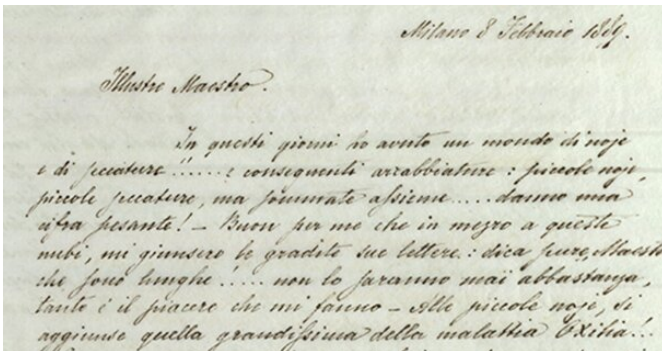 Milano 8 Febbraio 1889.
Illustre Maestro.
In questi giorni ho avuto un mondo di noje
e di seccature!!...... e conseguenti arrabbiature: piccole noje,
piccole seccature, ma sommate assieme..... danno una
cifra pesante! - Buon per me che in mezzo a queste
nubi, mi giunsero le gradite sue lettere: dica pure, Maestro
che sono lunghe!.... non lo saranno mai abbastanza,
tanto è il piacere che mi fanno - Alle piccole noje, si
aggiunse quella grandissima della malattia Exilia!..